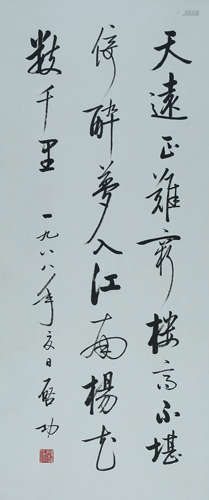 天遠正難窮楼高不堪
倚醉夢入江南楊花
数千里 一九八八年夏日 启功